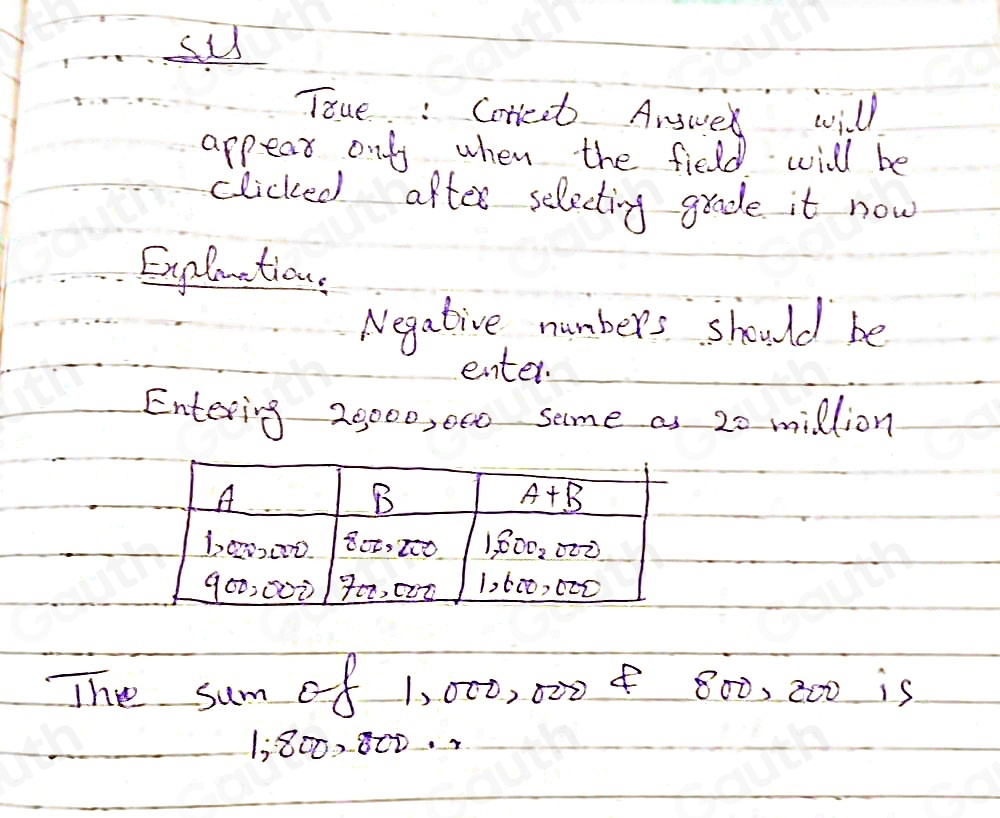 Sol
True : Correct Answer will
appear only when the field will be
clicked after selecting grade it now
Explanation:
Negative numbers should be
enter.
Entering 20,000,000 same as 20 million
A B A+B
1,000,000 800,000 1,800,000
900,000 700,000 1,600,000
The sum of 1,000,000 & 800,000 is
1,800,800 ..